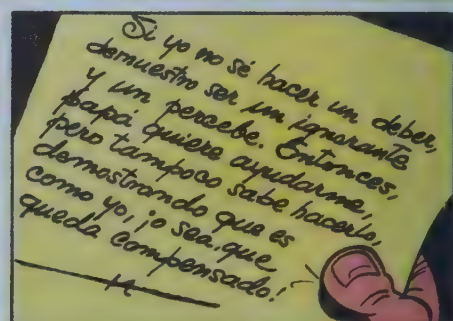 Si yo no sé hacer un deber,
demuestro ser un ignorante
y un percebe. Entonces,
papá quiere ayudarme,
pero tampoco sabe hacerlo,
demostrando que es
como yo, ¡o sea que
queda compensado!